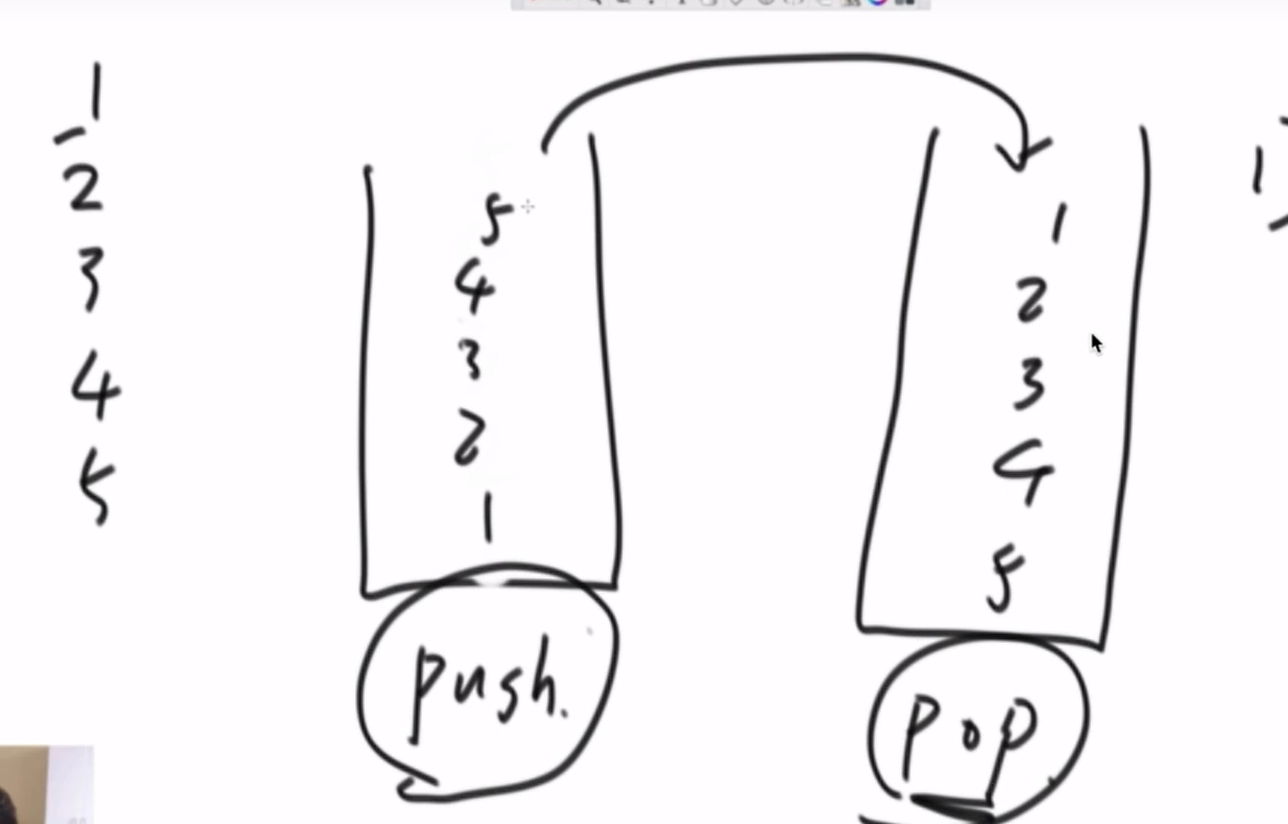 1
2
3
4
5
5
4
3
2
1
push.
1
2
3
4
5
pop
1